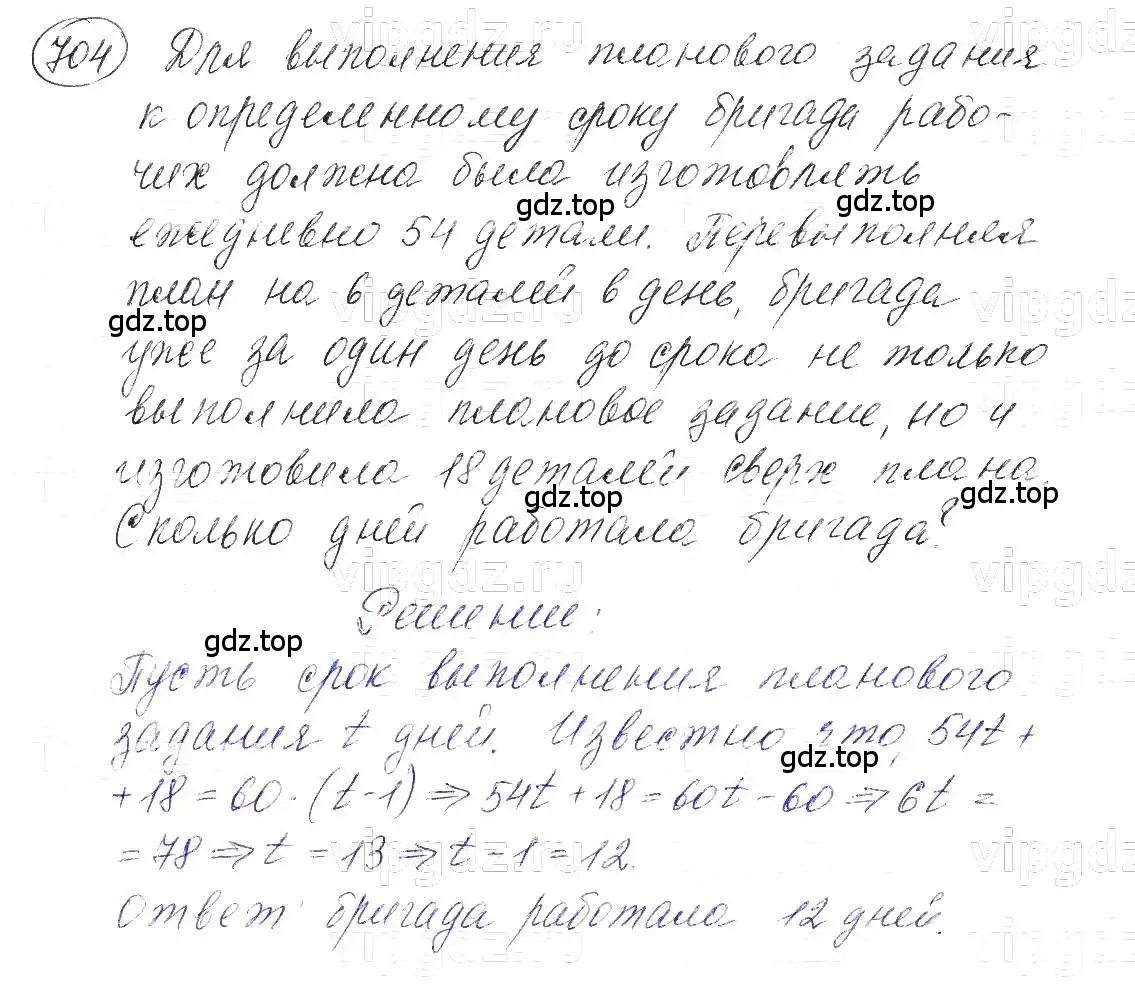 704 Для выполнения планового задания
к определенному сроку бригада рабо-
чих должна была изготовлять
gdz.top gdz.top
ежедневно 54 детали. Перевыполняя
план на 6 деталей в день, бригада
gdz.top
уже за один день до срока не только
выполнила плановое задание, но и
изготовила 18 деталей сверх плана.
gdz.top gdz.top
Сколько дней работала бригада?
Решение:
gdz.top
Пусть срок выполнения планового
задания t дней. Известно что, 54t +
gdz.top
+ 18 = 60 · (t - 1) ⇒ 54t + 18 = 60t - 60 ⇒ 6t =
= 78 ⇒ t = 13 ⇒ t - 1 = 12.
Ответ: бригада работала 12 дней.